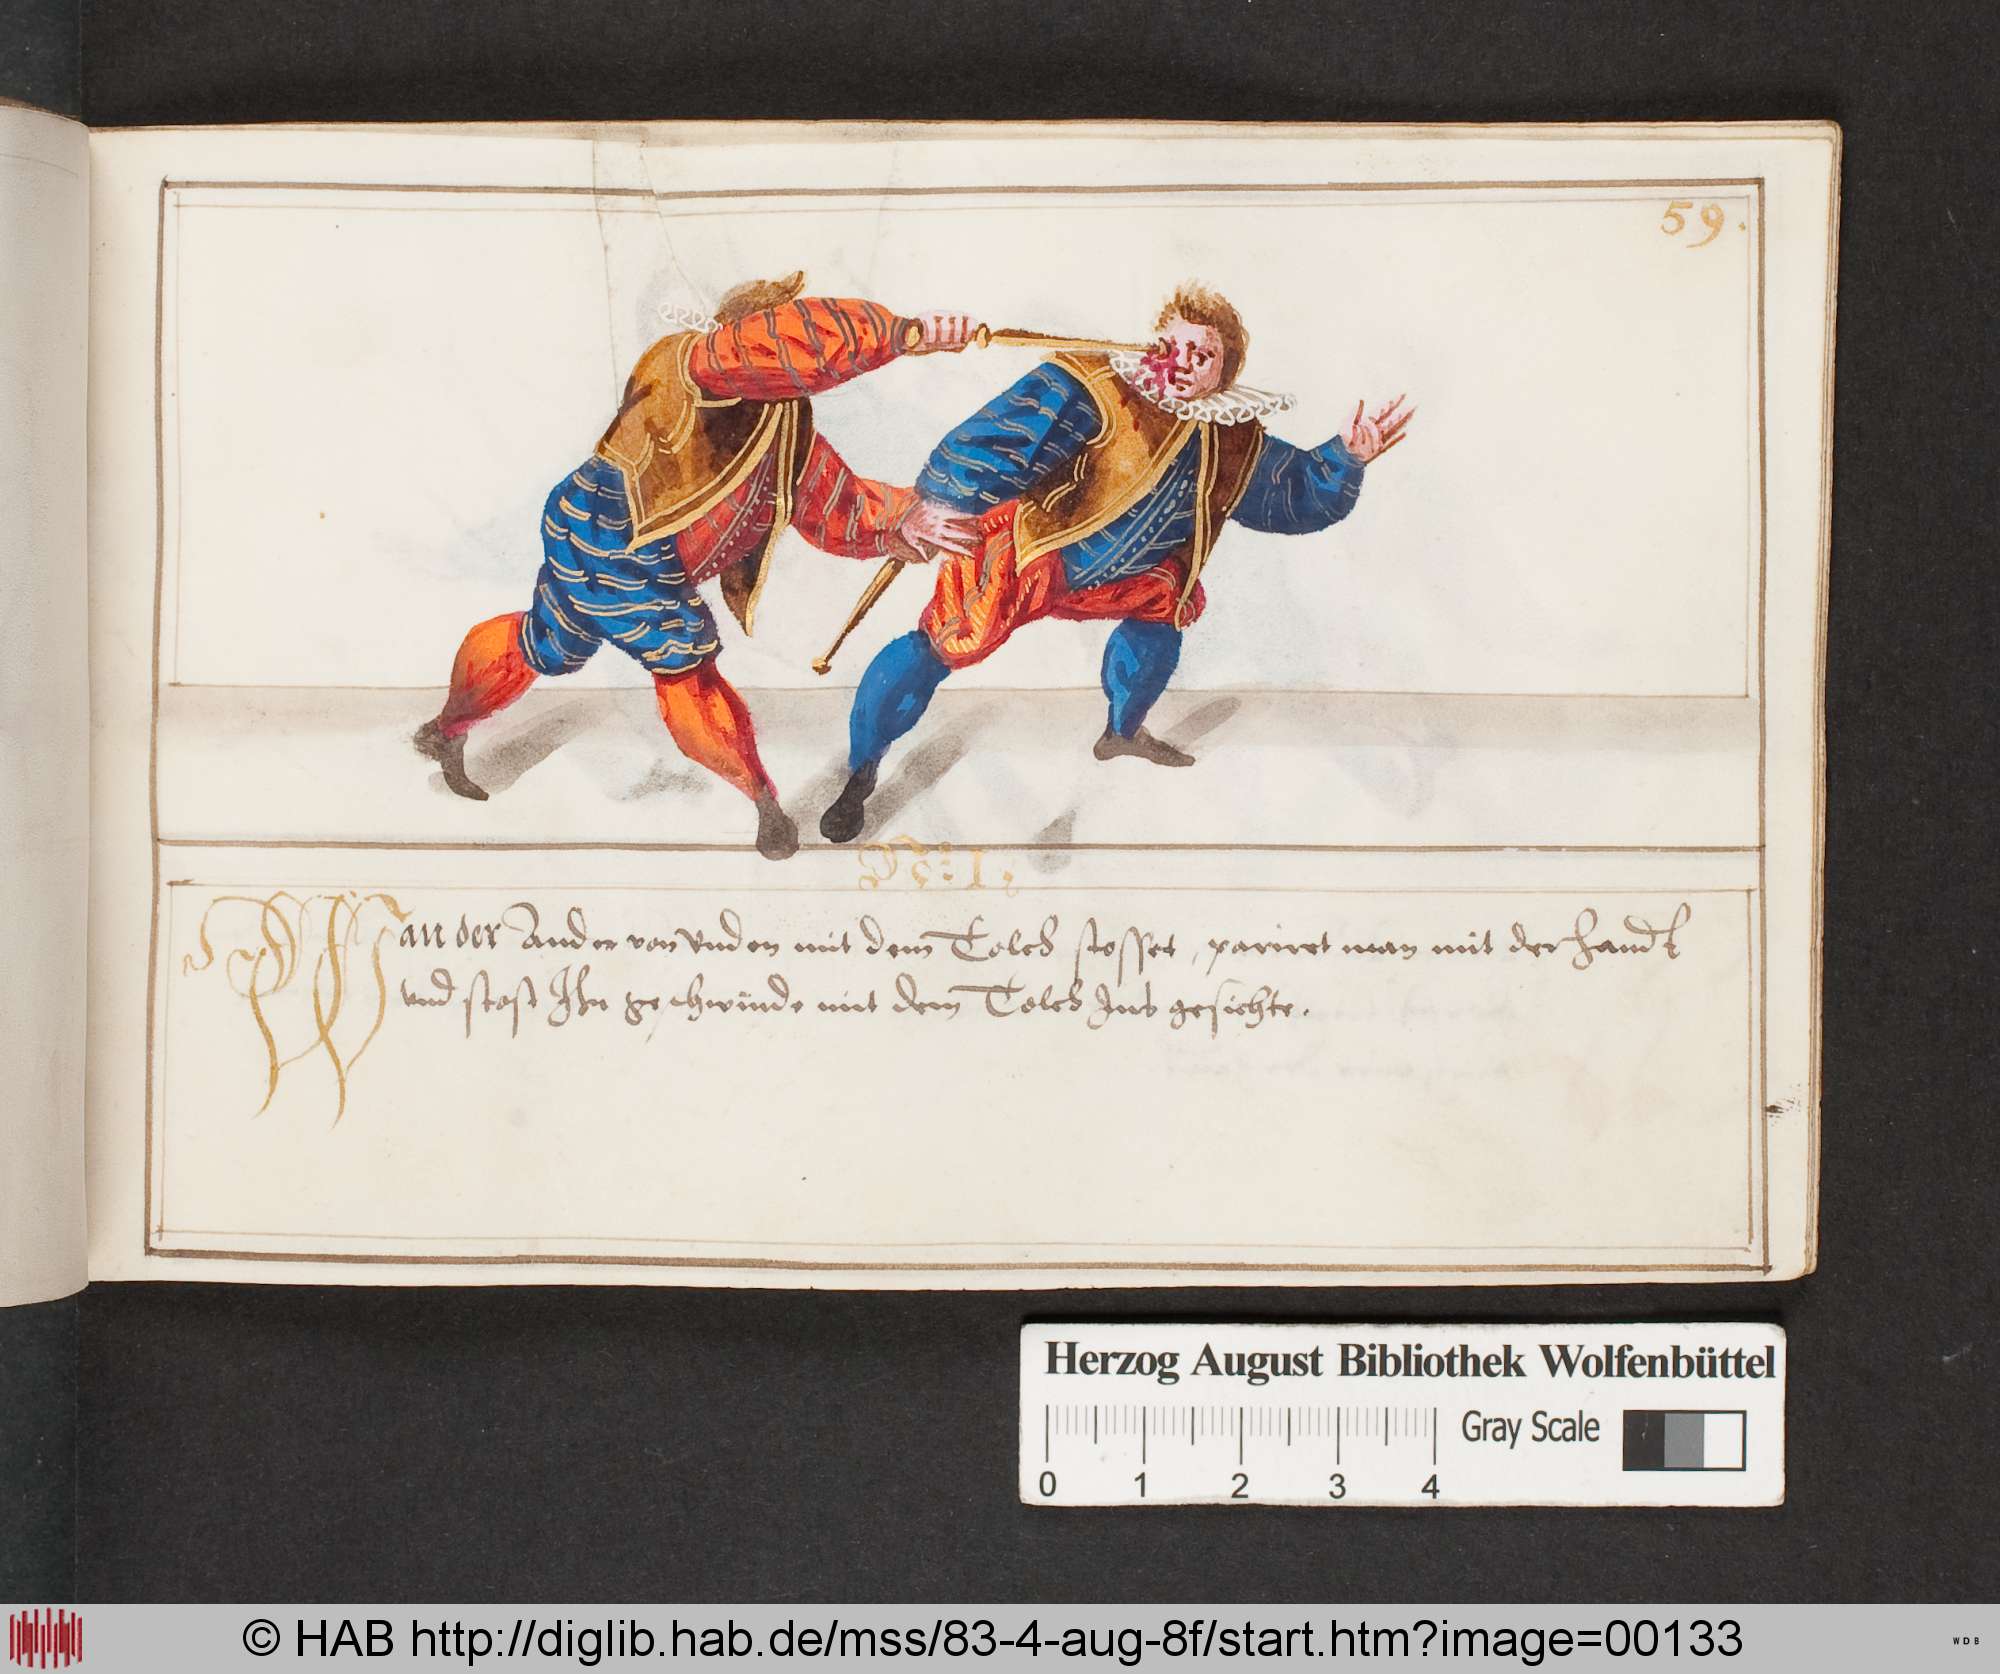 59.
Wan der Ander von Unden mit dem Tolch stosset, pariret man mit der handt
und stost Ihn geschwinde mit dem Tolch Ins gesichte.
Herzog August Bibliothek Wolfenbüttel
0 1 2 3 4
Gray Scale
© HAB http://diglib.hab.de/mss/83-4-aug-8f/start.htm?image=00133
WDB